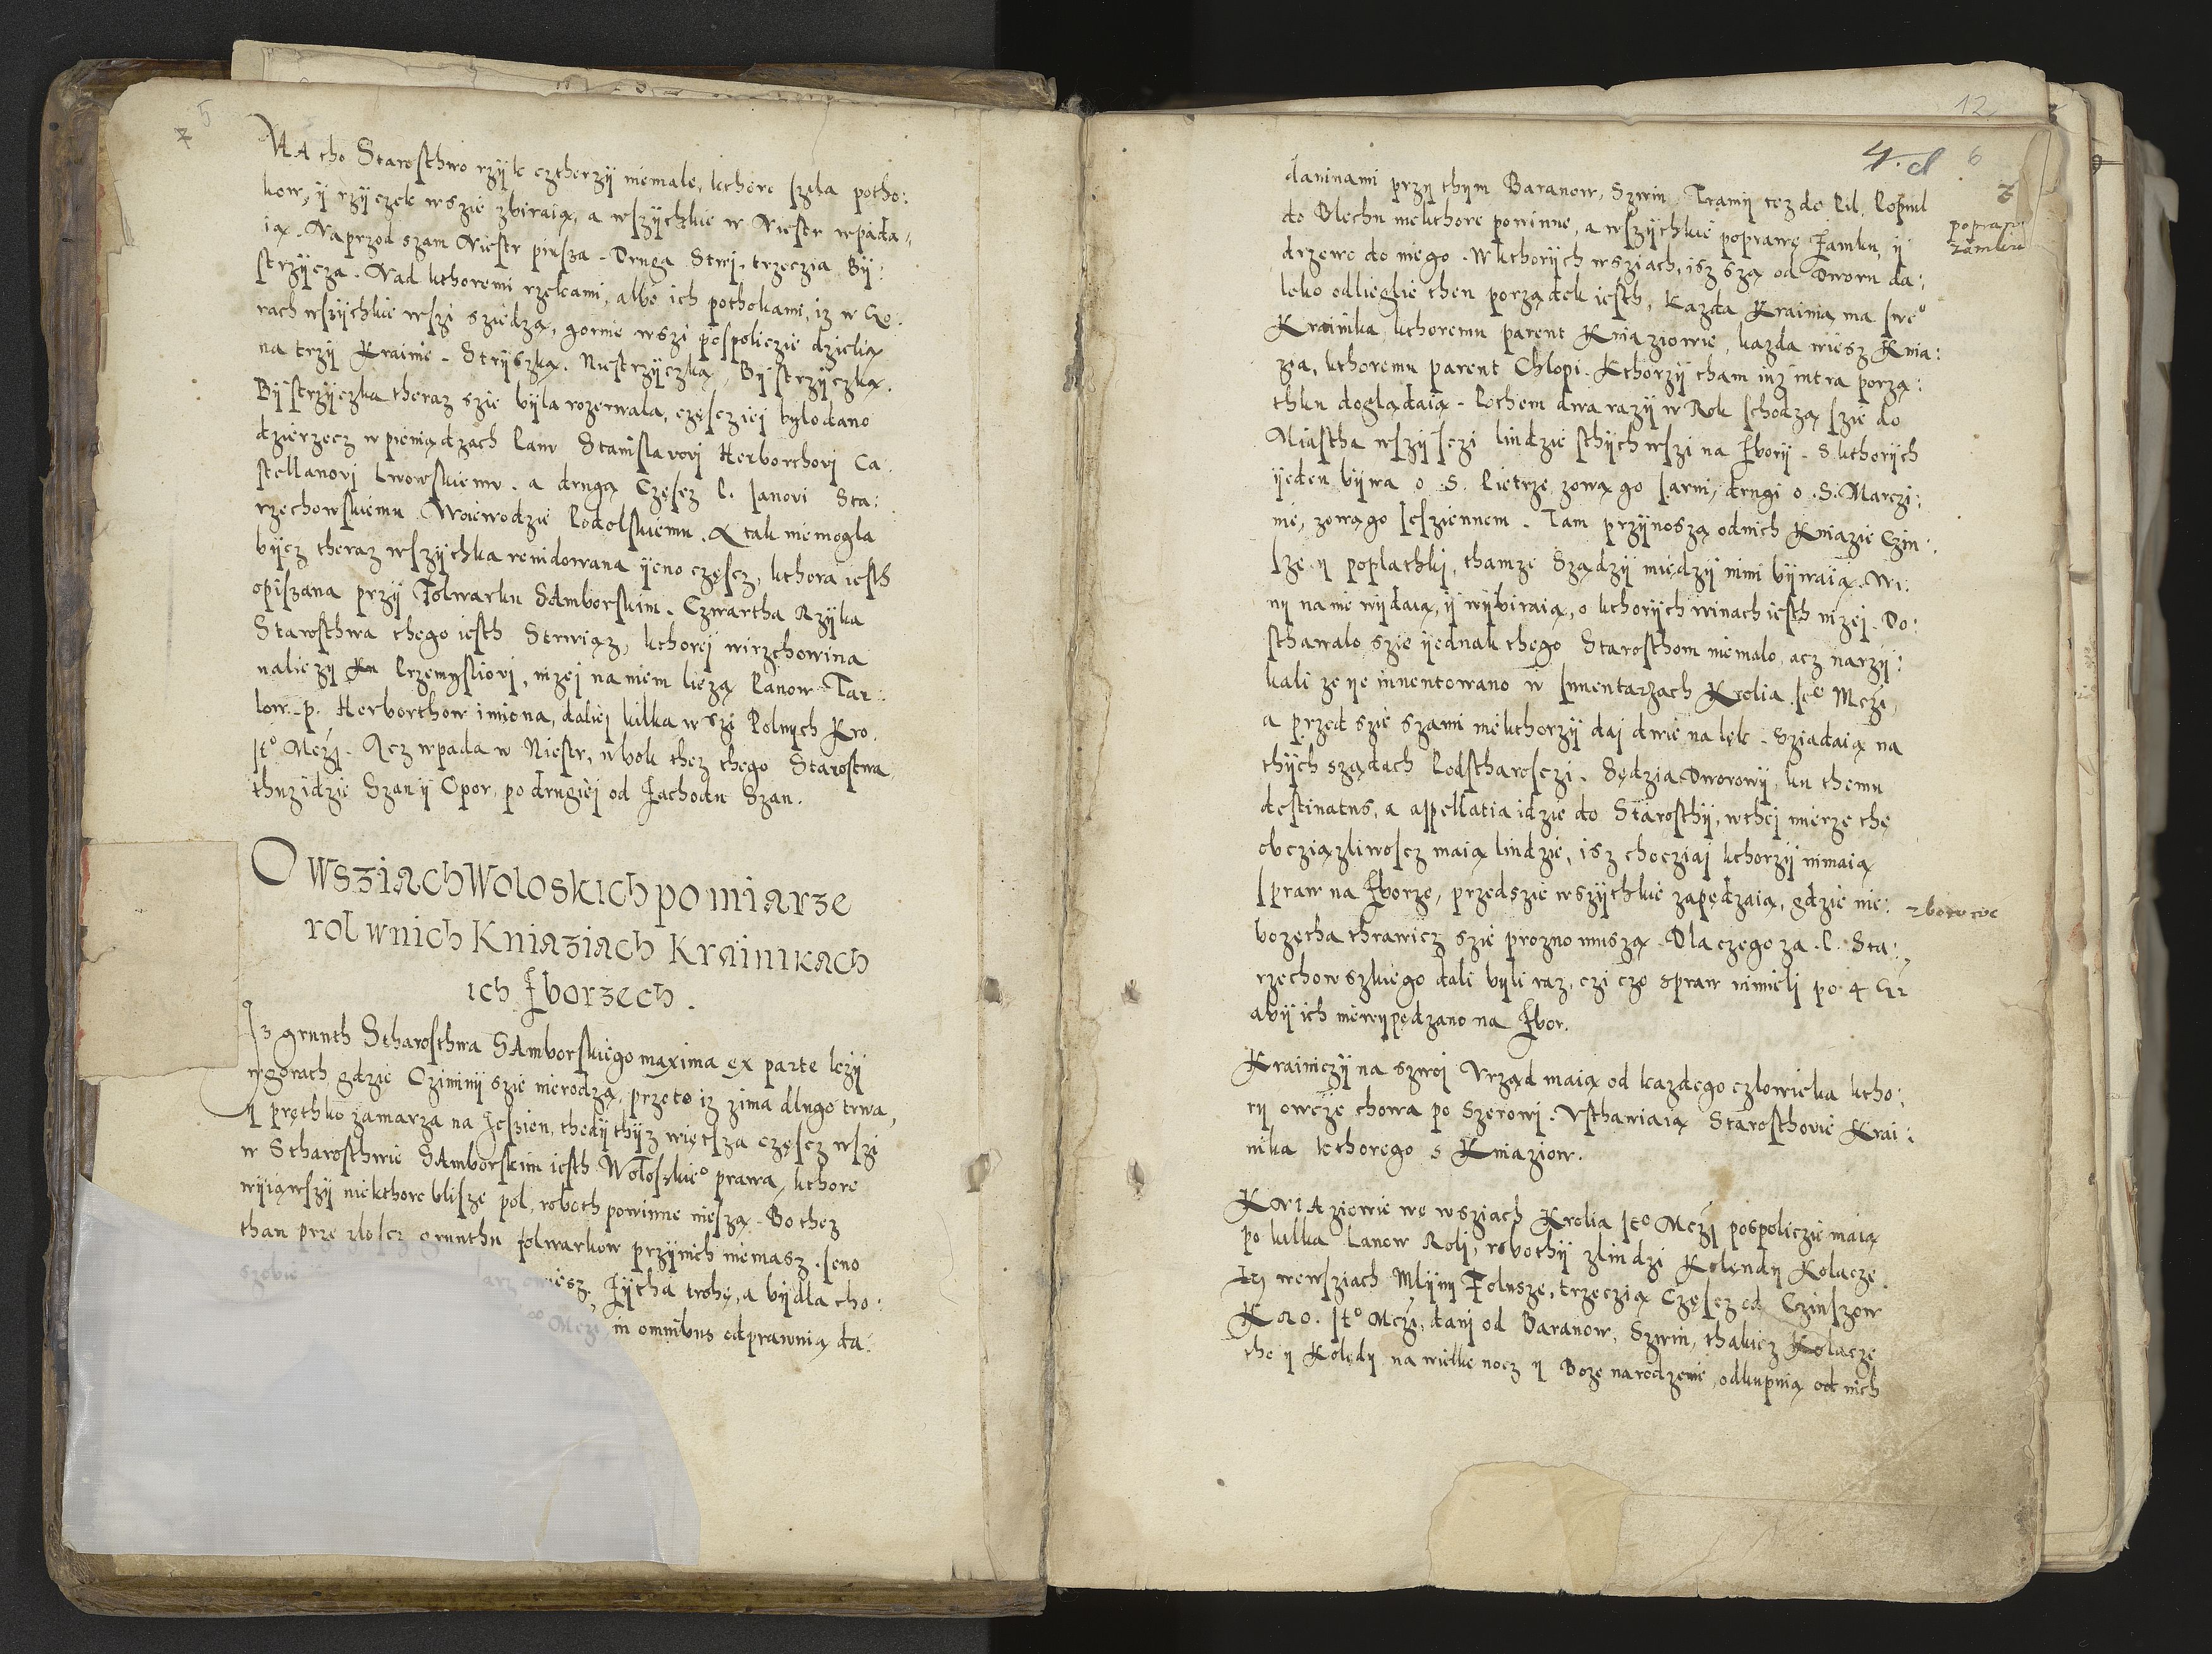 5
Ma tho Starosthwo rzyk cztherzy niemale, kthore szeła potho:
kow, y rzyczek wszie zbiraią, a wszychkie w Niestr wpada-
ią. Naprzod szam Niestr pirsza. Druga Strij, trzeczia By:
strzycza. Nad kthoremi rzekami, albo ich pothokami, iz w Go:
rach wszychkie wszi szedzą, gornie wszi pospoliczie dzielią
na trzy Krainie. Stryszką. Niestrzyczką, Bystrzyczką.
Bystrzyczka theraz szie była rozerwala, częscziej bylo dano
dzierzecz w pieniądzach Panu Stanislavovi Herborthovi Ca:
stellanovi Lwowskiemu. a drugą Częscz P. Janovi Sta:
rzechowskiemu Woiewodzie Podolskiemu. A tak niemogla
bycz theraz wszychka rewidowana yeno częscz, kthora iesth
opiszana przy Folwarku SAmborskim. Czwartha Rzyka
Starosthwa thego iesth Strwiąz, kthorej wirzchowina
naliezy ku Przemysliovi, nizej na niem liezą Panow Tar:
low. p. Herborthow imiona, daliej kilka wszi Polnych Kro.
Je° Mczi. Acz wpada w Niestr, w bok thez thego Starostwa
thuz idzie Szan y Opor, po drugiej od Zachodu Szan.
O Wsziach Woloskich po miarze
rol w nich Kniaziach Krainikach
ich Zborzech.
Iz grunth Stharosthwa SAmborskiego maxima ex parte leży
w gorach, gdzie Oziminy szie nierodzą, przeto iz zima dlugo trwa,
y pręthko zamarza na Jeszien, thedy thyz więtsza częscz wszi
w Stharosthwie SAmborskim iesth Woloskie° prawa, kthore
wyiąwszy niekthore blisze pol, roboth powinne nieszą. Bo thez
tham prze zloscz grunthu folwarkow przynich niemasz. Jeno
szobie owiesz. Zytha trohę, a bydla cho:
Mczi in omnibus odprawuią da:
12
4. d 6
3
daninami przy thym Baranow, Szwin. Tramy tez do Pil, Popiul
do Blechu niekthore powinne, a wszychkie poprawę Zamku, y
poprawa
zamku
drzewo do niego. W kthorych wsziach, isz są od Dworu da:
leko odlieglie then porządek iesth, Kazda Kraina ma swe°
Krainika kthoremu parent Kniaziowie, kazda wiesz Knia:
zia, kthoremu parent Chlopi. Kthorzy tham iuz intra porzą:
thku doglądaią. Pothem dwa razy w Rok schodzą szie do
Miastha wszysczi liudzie sthych wszi na Zbory. S kthorych
yeden bywa o S. Pietrze zową go Jarni, drugi o S. Marczi:
nie, zowągo Jesziennem. Tam przynoszą odnich Kniazie Czin:
sze y poplathki, thamze Sządzy miedzy nimi bywaią. Wi:
ny na nie wydaią, y wybiraią, o kthorych winach iesth nizej. Do:
sthawalo szie yednak thego Starosthom niemalo, acz narzy:
kali ze ye inuentowano w Inuentarzach Krolia Je° Mczi,
a przed szie szami niekthorzy daj dwie na lęk. Sziadaią na
thych sządach Podstharosczi. Sędzia Dworowy, ku themu
destinatus, a appellatia idzie do Starosthy, w thej mierze thę
obcziązliwoscz maią liudzie, isz choczaj kthorzy nimaią
spraw na Zborze, przedszie wszythkie zapędzaią, gdzie nie:
zborowe
bozętha thrawicz szie prozno muszą. Dla czego za P. Sta:
rzechowskiego dali byli raz, czi czo spraw nimieli po 4 Gr
aby ich niewypędzano na Zbor.
Krainiczy na szwoj Vrząd maią od kazdego czlowieka ktho:
ry owcze chowa po Szerowi. Vsthawiaią Starosthovie Krai:
nika kthorego s Kniaziow.
KNIAziowie we wsziach Krolia Je° Mczi pospoliczie maią
po kilka Lanow Roli, robothy z liudzi Kolendy Kolacze.
Iz we wsziach Mlyny Folusze, trzeczią Częscz od Czinszow
KRO. Je° Mczi, dani od Baranow, Szwin, thakiez Kolacze
the y Kolędy na wielke nocz y Boze narodzenie, odkupuią od nich